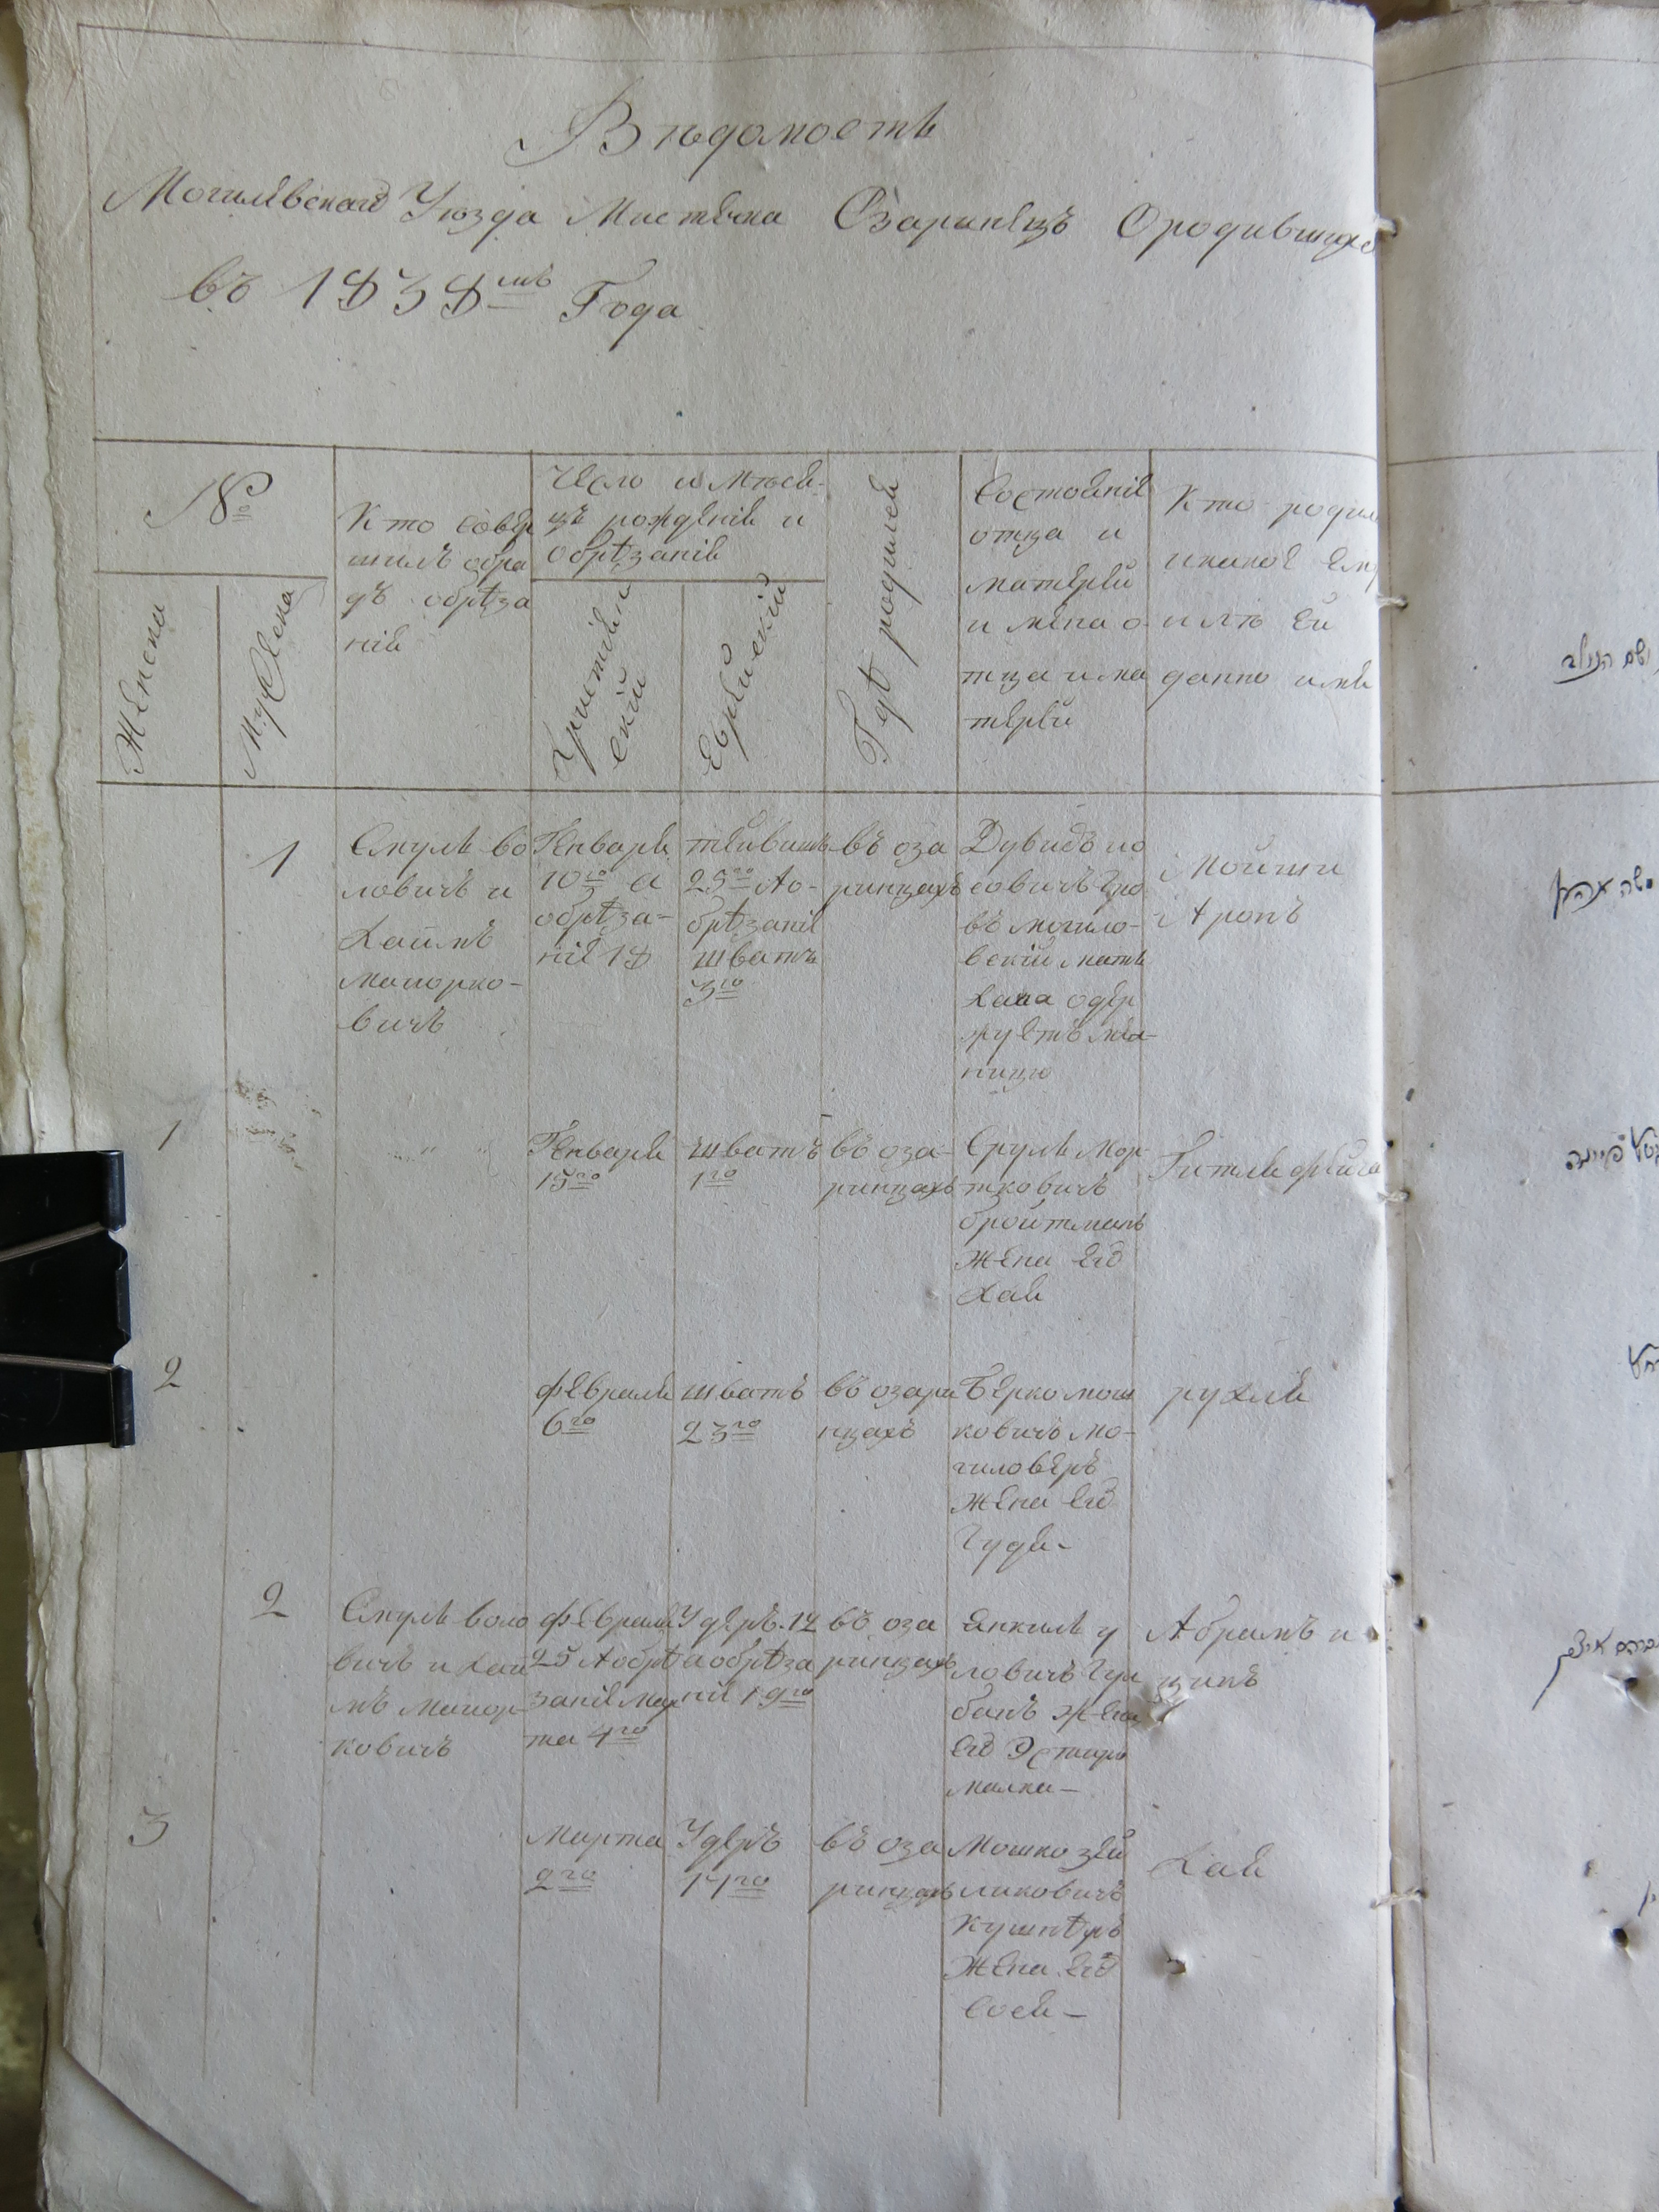 Вѣдомость
Могилѣвскаго Уѣзда Мистечка Озаринецъ Ородившихъ
въ 1838мъ Года
№
Женска
Мужеска
Кто совер
шилъ обря
дъ обрѣза
нія
Число и мѣся-
цъ рожденія и
обрѣзанія
Християн
скій
Еврейскій
Гдѣ родился
Состояніе
отца и
матерей
имена о-
тца и ма
терей
Кто родил
икакое ему
илѣ ей
данно имя
1
Смуль во
ловичъ и
Хаимъ
мапорко-
вичъ
Генваря
10го а
обрѣза-
ніе 18
тейвишъ
25го Ао-
брѣзаніе
шватъ
3го
въ оза
ринцахъ
Дувидъ ио
совичъ
въ могило-
вскій мать
Хана одер
жуетъ
ницю
Мойши
Аронъ
1
" "
Генваря
15го
шватъ
1го
въ оза-
ринцахъ
Сруль Мор
тковичъ
бройтманъ
Жена Его
Хая
Гитля фейга
2
февраля
6го
шватъ
23го
въ озари
нцахъ
Берко мош
ковичъ мо-
гиловеръ
жена его
Гудя-
рухля
2
Смуль воло
вичъ и Хаи
мъ мапор-
ковичъ
февраля
25 Аобрѣ
заніе мар
та 4го
Удеръ 12
аобрѣза
ніе 19го
въ оза
ринцахъ
Янкиль у
ловичъ Гур
банъ жена
его Эстира
малка-
Абрамъ и
цикъ
3
марта
2го
Удеръ
17го
въ оза
ринцахъ
Мошко зей
ликовичъ
Кушнѣръ
Жена его
Сося-
Хая